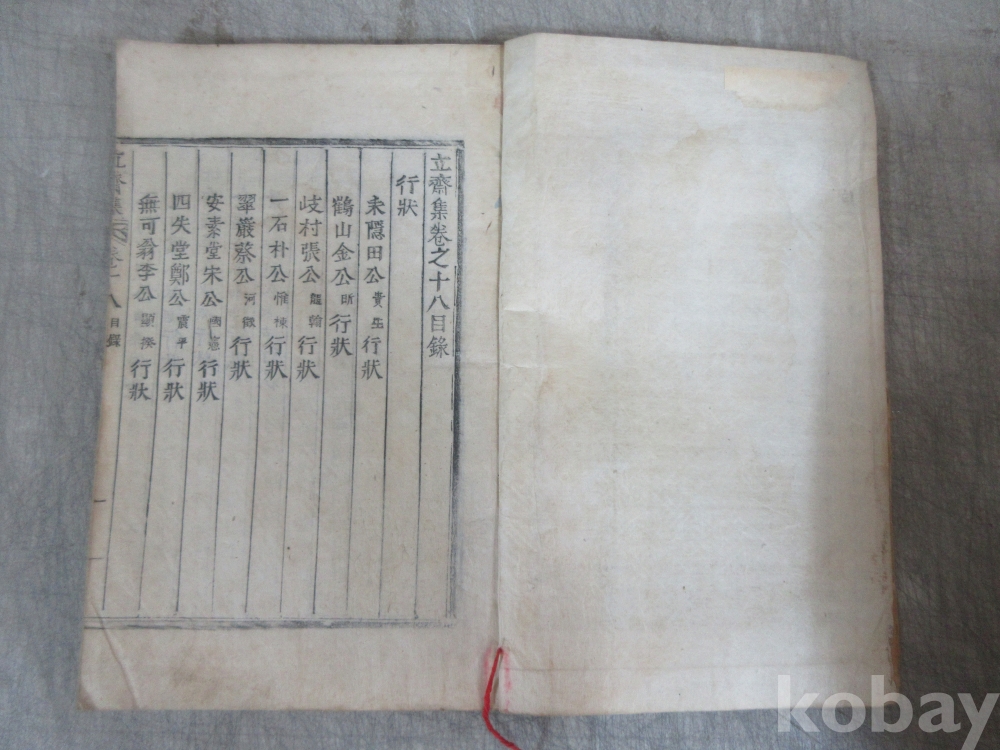 立齋集卷之十八目錄
行狀
耒隱田公貴生行狀
鶴山金公昕行狀
歧村張公龍翰行狀
一石朴公惟棟行狀
翠巖蔡公河徵行狀
安素堂宋公國憲行狀
四失堂鄭公震平行狀
無可翁李公行狀
立齋集 卷十八 目錄 一
kobay